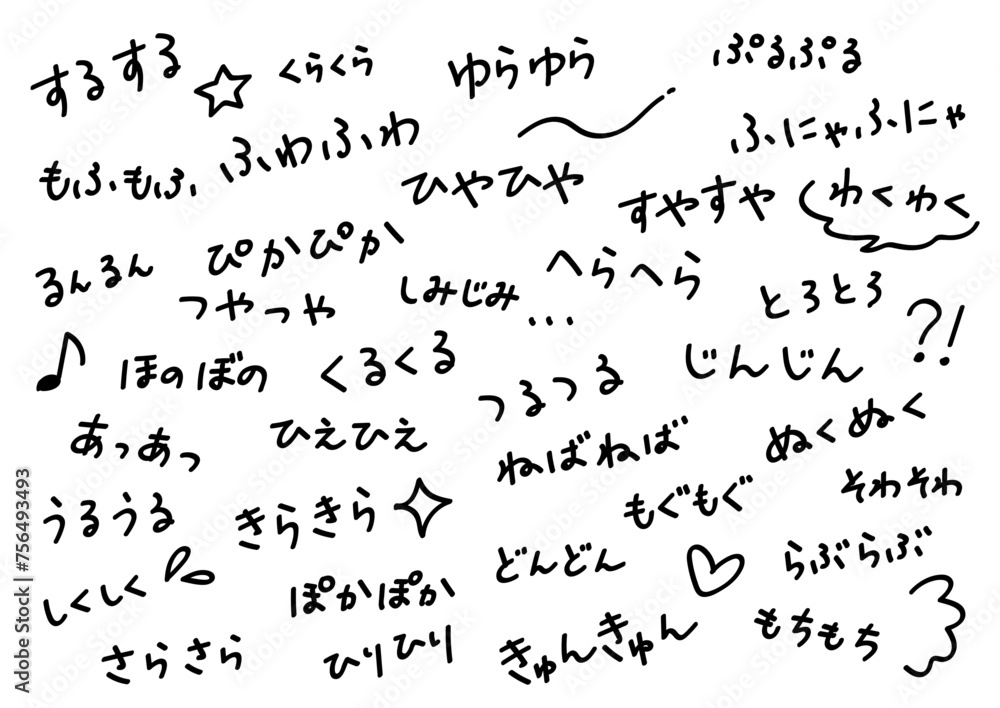 するする
くらくら
ゆらゆら
ぷるぷる
もふもふ
ふわふわ
ひやひや
ふにゃふにゃ
すやすや
わくわく
るんるん
ぴかぴか
つやつや
しみじみ
...
へらへら
とろとろ
?!
ほのぼの
くるくる
つるつる
じんじん
あっあっ
ひえひえ
ねばねば
ぬくぬく
うるうる
きらきら
もぐもぐ
そわそわ
しくしく
ぽかぽか
どんどん
らぶらぶ
さらさら
ひりひり
きゅんきゅん
もちもち
Adobe Stock | #756493493